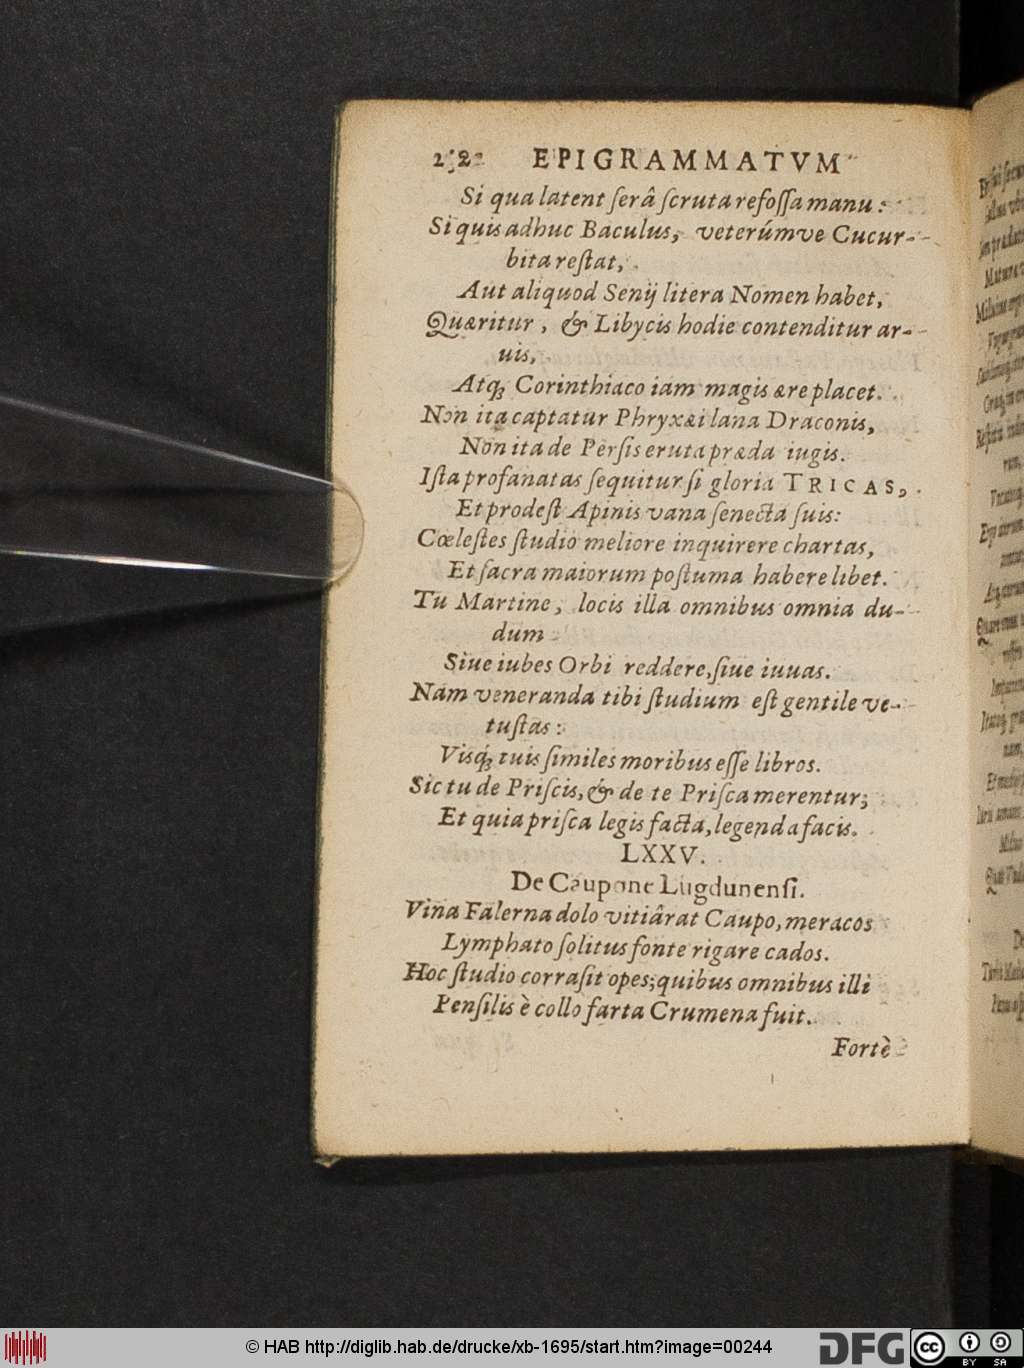 252 EPIGRAMMATVM
Si qua latent serâ scruta refossa manu:
Si quis adhuc Baculus, veterúmve Cucur-
bita restat,
Aut aliquod Senij litera Nomen habet,
Quæritur, & Libycis hodie contenditur ar-
uis,
Atq; Corinthiaco iam magis ære placet.
Non ita captatur Phryxæi lana Draconis,
Non ita de Persis eruta præda iugis.
Ista profanatas sequitur si gloria TRICAS,
Et prodest Apinis vana senecta suis:
Cœlestes studio meliore inquirere chartas,
Et sacra maiorum postuma habere libet.
Tu Martine, locis illa omnibus omnia du-
dum
Siue iubes Orbi reddere, siue iuuas.
Nam veneranda tibi studium est gentile ve-
tustas:
Visq; tuis similes moribus esse libros.
Sic tu de Priscis, & de te Prisca merentur;
Et quia prisca legis facta, legenda facis.
LXXV.
De Caupone Lugdunensi.
Vina Falerna dolo vitiârat Caupo, meracos
Lymphato solitus fonte rigare cados.
Hoc studio corrasit opes; quibus omnibus illi
Pensilis è collo farta Crumena fuit.
Fortè
© HAB http://diglib.hab.de/drucke/xb-1695/start.htm?image=00244
DFG
cc
BY SA